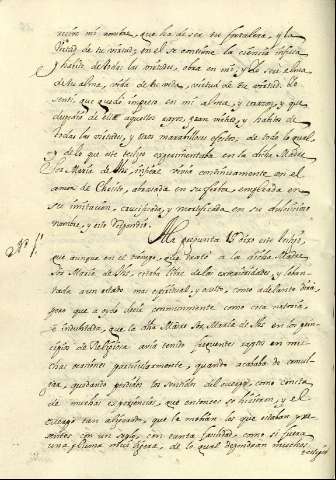 mi amor, que ha de ser tu fortaleza, y la
virtud de tu virtud, en el se contiene la ciencia infusa
y habito de todas las virtudes, obra en mi, y Yo seré alma
de tu alma, vida de tu vida, virtud de tu virtud. Lo
que quedó impreso en mi alma, y corazon, y que
aquellos
todas las virtudes, y tres maravillosos efectos, de todo lo qual,
y de lo que este testigo experimentaba en la dicha Madre
Sor Maria de Jhs, infiere vivia continuamente en el
amor de Christo, abrasada en su fuego, empleada en
su imitacion, crucificada, y mortificada en su dulcissimo
nombre, y esto respondio.
A la pregunta 18 dixo este testigo,
que aunque en el tiempo, que trató a la dicha Madre
Sor Maria de Jhs, estaba libre de las exterioridades, y levan-
tada a un estado mas espiritual, y oculto, como adelante dirá,
pero que a oydo decir comunmente como cosa notoria,
e indubitada, que la dha Madre Sor Maria de Jhs en los prin-
cipios de Religiosa avia tenido frequentes raptos en mu-
chas ocasiones particularmente, quando acababa de comul-
gar, quedando perdidos los sentidos del cuerpo, como consta
de muchas experiencias, que entonces se hicieron, y el
cuerpo tan aligerado, que la mobian los que estaban pre-
sentes con un soplo, con tanta facilidad, como si fuera
una pluma muy ligera, de lo qual depondran muchos
testigos